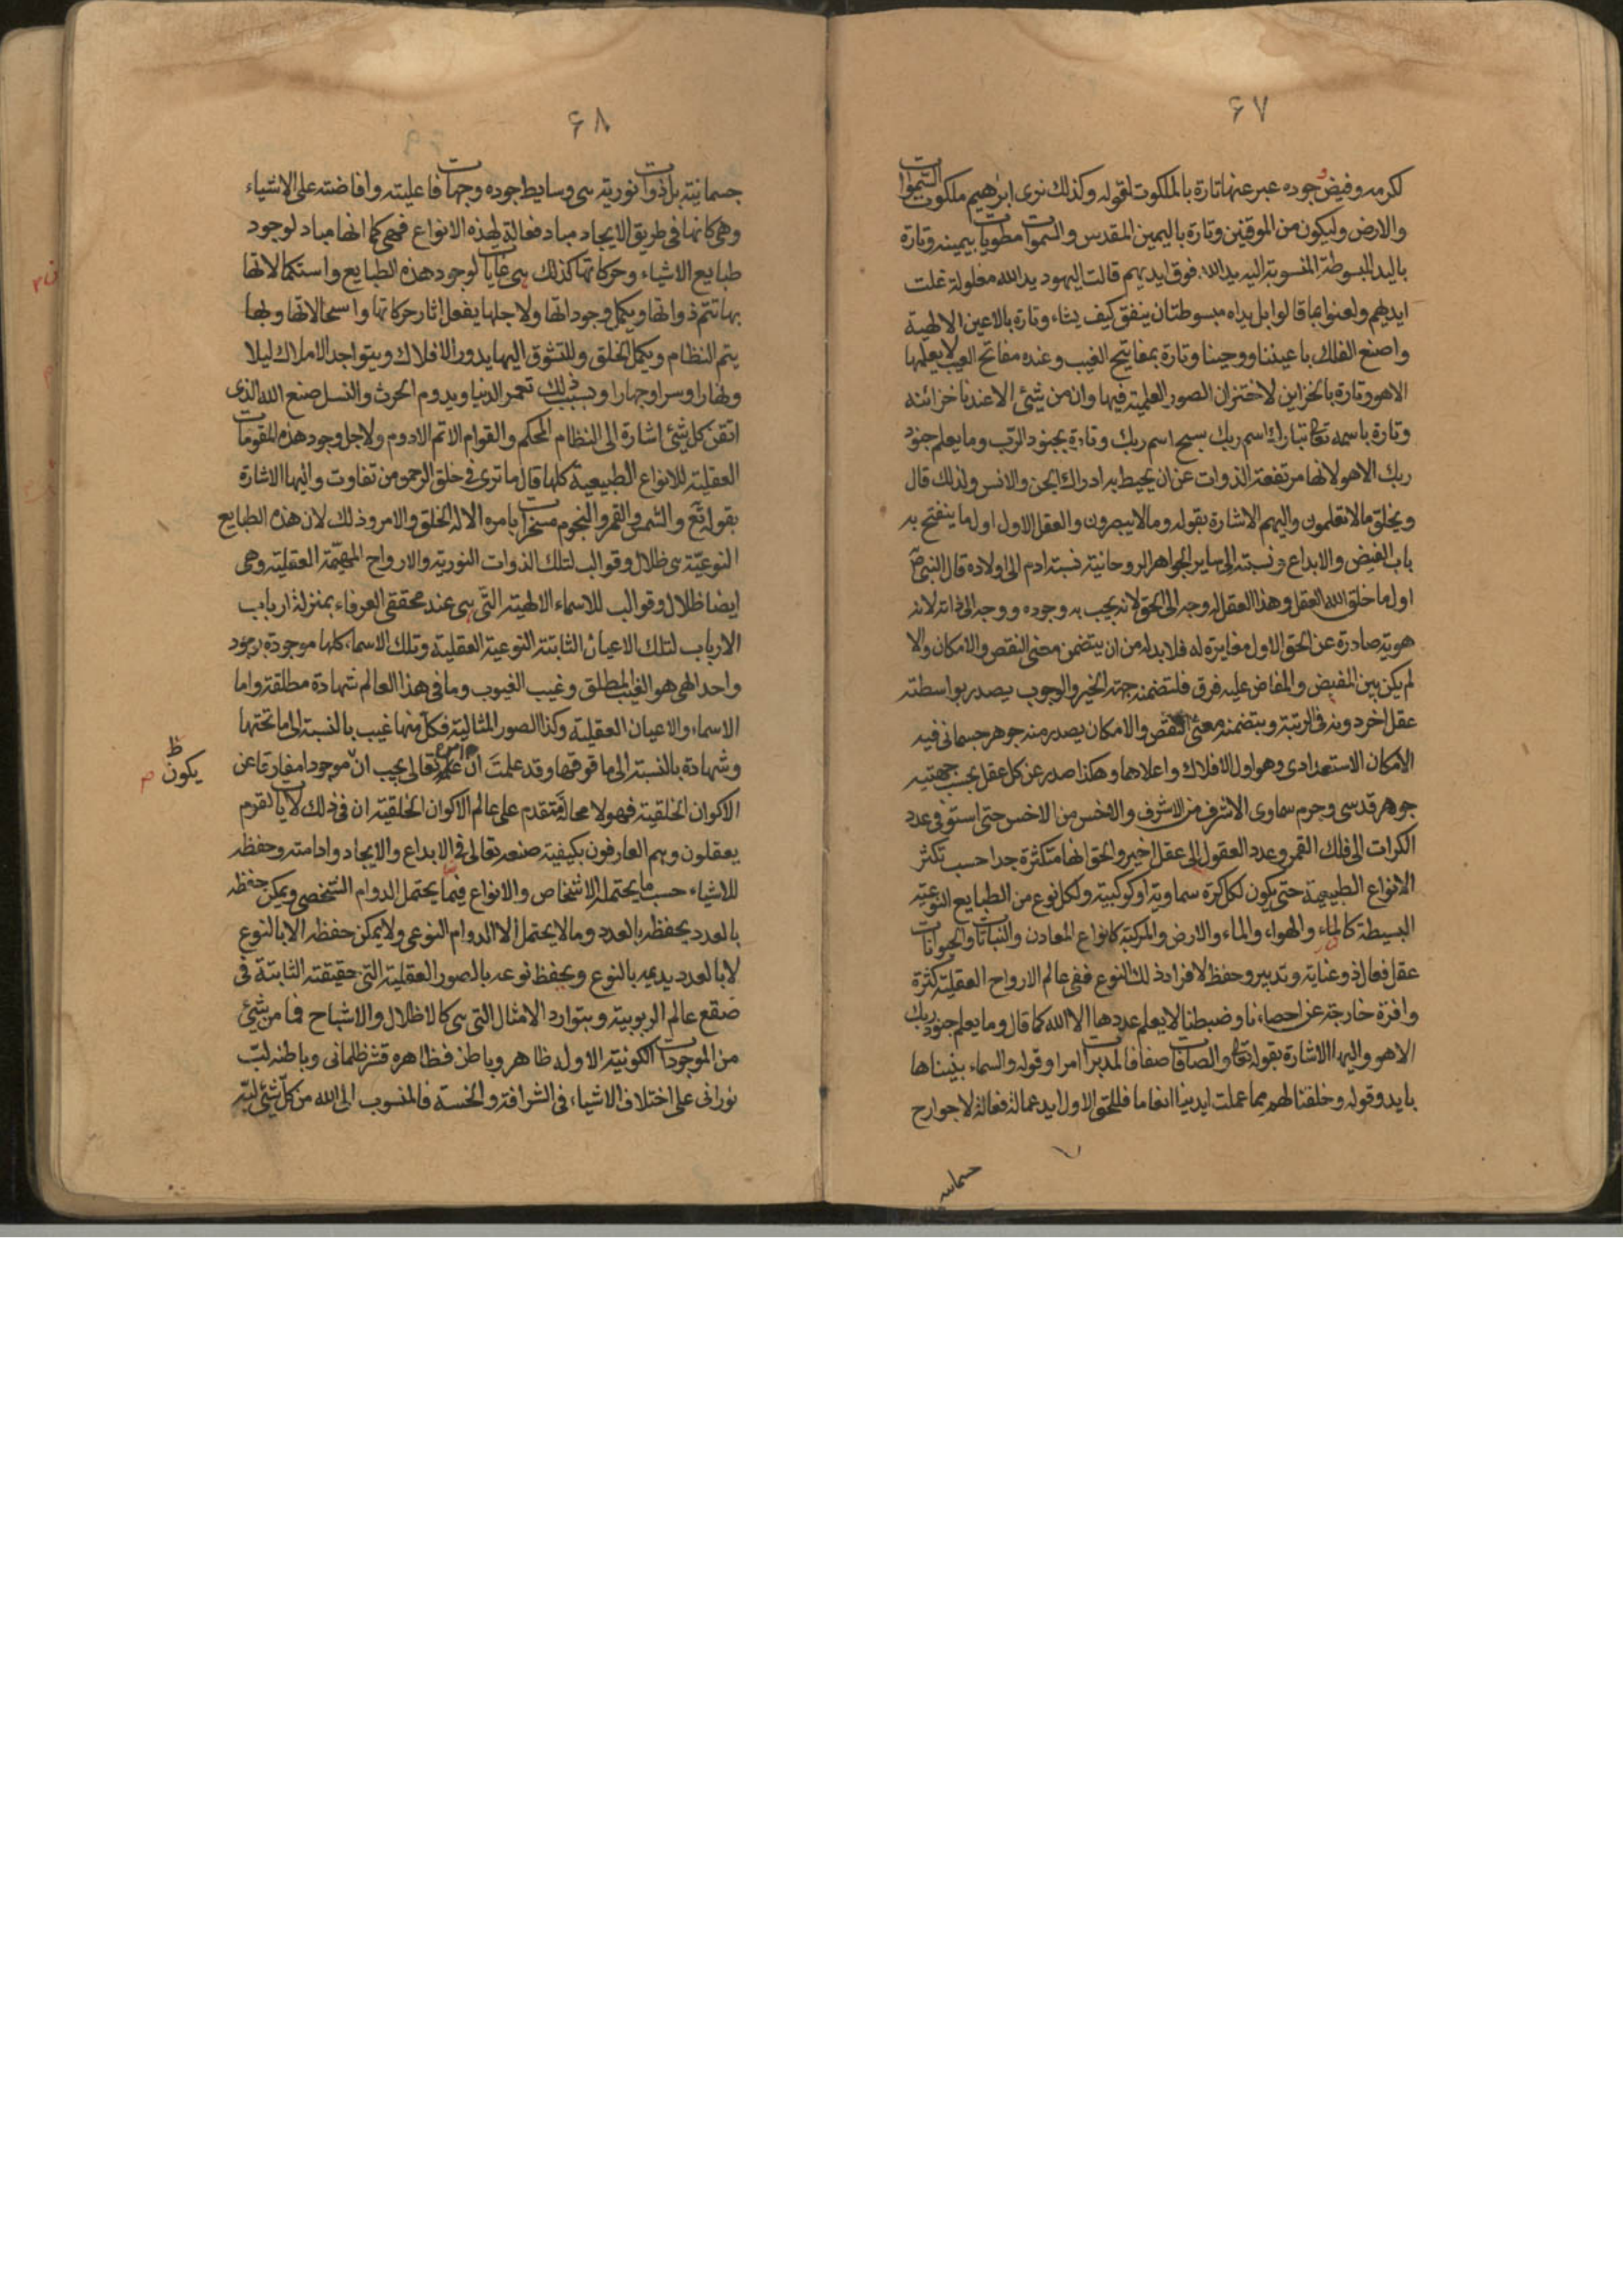 ۶۷
لكرمه وفيض جوده عبر عنها تارة بالملكوت لقوله وكذلك نرى ابرهيم ملكوت السموات
والارض وليكون من الموقنين وتارة باليمين المقدس والسموات مطويات بيمينه وتارة
باليد المبسوطة المنسوبة اليه يد الله فوق ايديهم قالت اليهود يد الله مغلولة غلت
ايديهم ولعنوا بما قالوا بل يداه مبسوطتان ينفق كيف يشاء وتارة بالاعين الالهية
واصنع الفلك باعيننا ووحينا وتارة بمفاتيح الغيب وعنده مفاتح الغيب لا يعلمها
الا هو وتارة بالخزاين لاختزان الصور العلمية فيها وان من شئ الا عندنا خزائنه
وتارة باسمه تعا تبارك اسم ربك سبح اسم ربك وتارة بجنود الرب وما يعلم جنود
ربك الا هو لانها مرتفعة الذوات عن ان يحيط به ادراك الجن والانس ولذلك قال
ويخلق ما لا تعلمون واليهم الاشارة بقوله وما لا يبصرون والعقل الاول اول ما ينفتح به
باب الفيض والابداع ونسبته الى ساير الجواهر الروحانية نسبة ادم الى اولاده قال النبي ص
اول ما خلق الله العقل وهذا العقل له وجه الى الحق لانه يجب به وجوده ووجه الى ذاته لانه
هوية صادرة عن الحق الاول مغايرة له فلا بد له من ان يتضمن معنى النقص والامكان والا
لم يكن بين المفيض والمفاض عليه فرق فلتضمنه جهة الخير والوجوب يصدر بواسطته
عقل اخر دونه في الرتبة وبتضمنه معنى النقص والامكان يصدر منه جوهر جسماني فيه
الامكان الاستعدادى وهو اول الافلاك واعلاها وهكذا صدر عن كل عقل بحسب جهتيه
جوهر قدسى وجرم سماوى الاشرف من الاشرف والاخس من الاخس حتى استوفى عدد
الكرات الى فلك القمر وعدد العقول الى عقل اخير والحق انها متكثرة جدا حسب تكثر
الانواع الطبيعية حتى يكون لكل كرة سماوية او كوكبية ولكل نوع من الطبايع النوعية
البسيطة كالماء والهواء والماء والارض والمركبة كانواع المعادن والنباتات والحيوانات
عقل فعال ذو عناية وتدبير وحفظ لافراد ذلك النوع ففى عالم الارواح العقلية كثرة
وافرة خارجة عن احصاءنا وضبطنا لا يعلم عددها الا الله كما قال وما يعلم جنود ربك
الا هو واليها الاشارة بقوله تعا والصافات صفا فالمدبرات امرا وقوله والسماء بنيناها
بايد وقوله وخلقنا لهم مما عملت ايدينا انعاما فللحق الاول ايد عمالة فعالة لا جوارح
جسمانيه
۶۸
جسمانية بل ذوات نورية هى وسايط جوده وجهات فاعليته وافاضته على الاشياء
وهى كانها فى طريق الايجاد مباد فعالة لهذه الانواع فهى كما انها مباد لوجود
طبايع الاشياء وحركاتها كذلك هى غايات لوجود هذه الطبايع واستكمالاتها
بها تتم ذواتها ويكمل وجوداتها ولاجلها يفعل اثار حركاتها واستحالاتها وبها
يتم النظام ويكمل الخلق وللتشوق اليها يدور الافلاك ويتواجد الاملاك ليلا
ونهارا وسرا وجهارا وبسبب ذلك تعمر الدنيا ويدوم الحرث والنسل صنع الله الذى
اتقن كل شئ اشارة الى النظام المحكم والقوام الاتم الادوم ولاجل وجود هذه المقومات
العقلية للانواع الطبيعية كلها قال ما ترى فى خلق الرحمن من تفاوت واليها الاشارة
بقوله تع والشمس والقمر والنجوم مسخرات بامره الا له الخلق والامر وذلك لان هذه الطبايع
النوعية هى ظلال وقوالب لتلك الذوات النورية والارواح المهيمة العقلية وهى
ايضا ظلال وقوالب للاسماء الالهية التى هى عند محققى العرفاء بمنزلة ارباب
الارباب لتلك الاعيان الثابتة النوعية العقلية وتلك الاسماء كلها موجودة بوجود
واحد الهى هو الغيب المطلق وغيب الغيوب وما فى هذا العالم شهادة مطلقة واما
الاسماء والاعيان العقلية وكذا الصور المثالية فكل منها غيب بالنسبة الى ما تحتها
وشهادة بالنسبة الى ما فوقها وقد علمت ان عالم امره تعالى يجب ان موجودا مفارقا عن
يكون ظ
الاكوان الخلقية فهو لا محالة متقدم على عالم الاكوان الخلقية ان فى ذلك لايات لقوم
يعقلون وهم العارفون بكيفية صنعه تعالى فى الابداع والايجاد وادامته وحفظه
للاشياء حسب ما يحتمله الاشخاص والانواع فيما يحتمل الدوام الشخصى ويمكن حفظه
بالعدد يحفظه بالعدد وما لا يحتمل الا الدوام النوعى ولا يمكن حفظه الا بالنوع
لا بالعدد يديمه بالنوع ويحفظ نوعه بالصور العقلية التى حقيقته الثابتة فى
صقع عالم الربوبية وبتوارد الامثال التى هى كالاظلال والاشباح فما من شئ
من الموجودات الكونية الا وله ظاهر وباطن فظاهره قشر ظلمانى وباطنه لب
نورانى على اختلاف الاشياء فى الشرافة والخسة فالمنسوب الى الله من كل شئ لبه